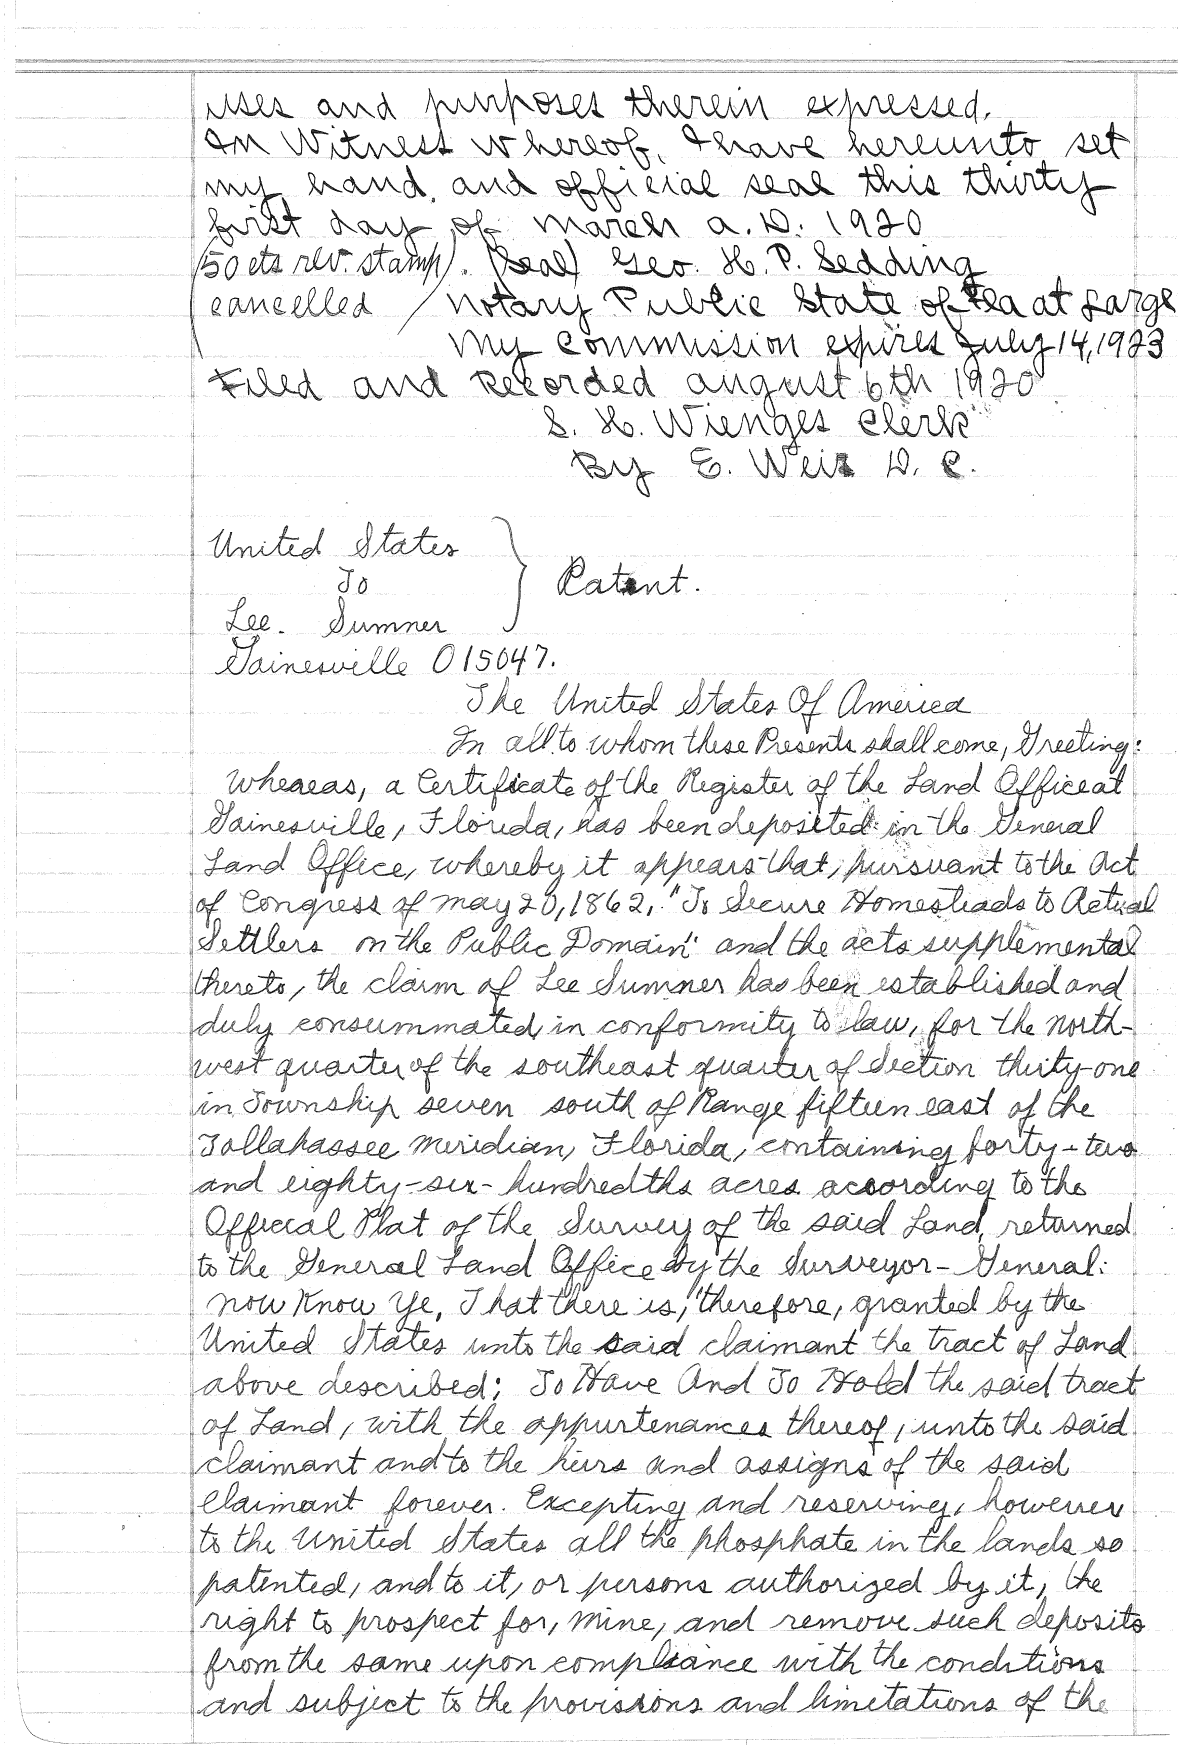 uses and purposes therein expressed.
In Witness whereof, I have hereunto set
my hand and official seal this thirty
first day of March A.D. 1920
(50 cts rev. stamp). (Seal) Geo. H. P. Sedding
cancelled / Notary Public State of Fla at Large
My Commission expires July 14, 1923
Filed and Recorded August 6th 1920
S. H. Wienges Clerk
By E. Weir D. C.
United States
To } Patent.
Lee. Sumner
Gainesville 015047.
The United States Of America
In all to whom these Presents shall come, Greeting:
Whereas, a Certificate of the Register of the Land Office at
Gainesville, Florida, has been deposited in the General
Land Office, whereby it appears that, pursuant to the Act
of Congress of May 20, 1862, "To Secure Homesteads to Actual
Settlers on the Public Domain" and the acts supplemental
thereto, the claim of Lee Sumner has been established and
duly consummated, in conformity to law, for the north-
west quarter of the southeast quarter of Section thirty-one
in Township seven south of Range fifteen east of the
Tallahassee Meridian, Florida, containing forty-two
and eighty-six-hundredths acres according to the
Official Plat of the Survey of the said Land, returned
to the General Land Office by the Surveyor-General:
Now Know Ye, That there is, therefore, granted by the
United States unto the said claimant the tract of Land
above described; To Have And To Hold the said tract
of Land, with the appurtenances thereof, unto the said
claimant and to the heirs and assigns of the said
claimant forever. Excepting and reserving, however
to the United States all the phosphate in the lands so
patented, and to it, or persons authorized by it, the
right to prospect for, mine, and remove such deposits
from the same upon compliance with the conditions
and subject to the provisions and limitations of the